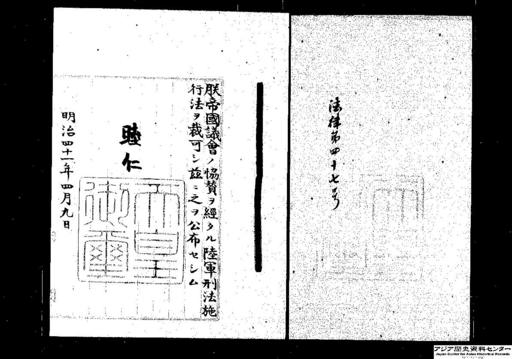 法律第四十七号
朕帝國議會ノ協賛ヲ經タル陸軍刑法施
行法ヲ裁可シ茲ニ之ヲ公布セシム
睦仁
天皇
御璽
明治四十一年四月九日
アジア歴史資料センター
Japan Center for Asian Historical Records